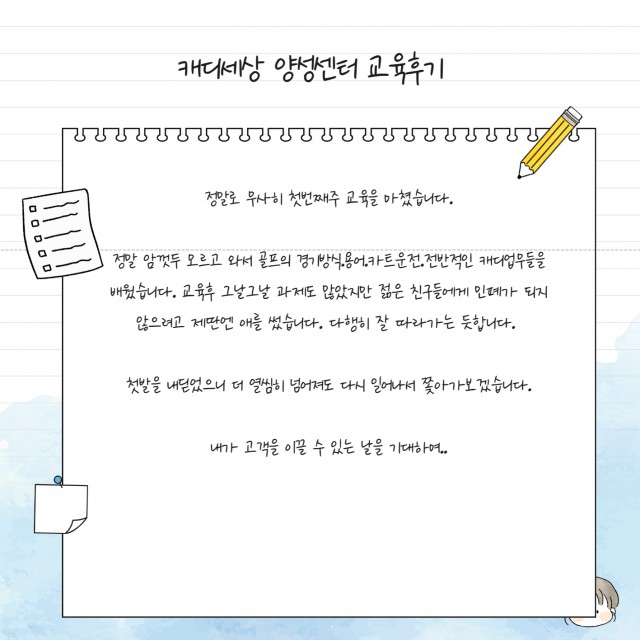 캐디세상 양성센터 교육후기
정말로 무사히 첫번째주 교육을 마쳤습니다.
정말 암껏두 모르고 와서 골프의 경기방식.용어.카트운전.전반적인 캐디업무들을
배웠습니다. 교육후 그날그날 과제도 많았지만 젊은 친구들에게 민폐가 되지
않으려고 제딴엔 애를 썼습니다. 다행히 잘 따라가는 듯합니다.
첫발을 내딛었으니 더 열씸히 넘어져도 다시 일어나서 쫓아가보겠습니다.
내가 고객을 이끌 수 있는 날을 기대하며..